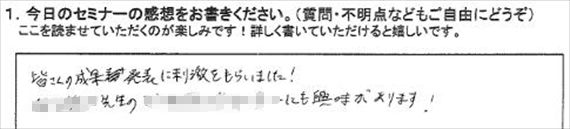 1. 今日のセミナーの感想をお書きください。(質問・不明点などもご自由にどうぞ)
ここを読ませていただくのが楽しみです!詳しく書いていただけると嬉しいです。
皆さんの成果発表に刺激をもらいました!
先生の にも興味があります!